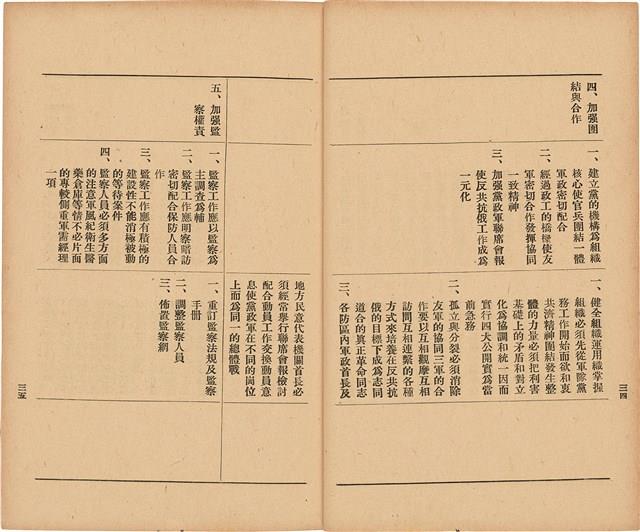 四、加强團
結與合作
一、建立黨的機構爲組織
核心使官兵團結一體
軍政密切配合
二、經過政工的橋樑使友
軍密切合作發揮協同
一致精神
三、加强黨政軍聯席會報
使反共抗俄工作成爲
一元化
一、健全組織運用組織掌握
組織必須先從軍隊黨
務工作開始而欲和衷
共濟精神團結發生整
體的力量必須把利害
基礎上的矛盾和對立
化爲協調和統一因而
實行四大公開實爲當
前急務
二、孤立與分裂必須消除
友軍的協同三軍的合
作要以互相觀摩互相
訪問互相連繫的各種
方式來培養在反共抗
俄的目標下成爲志同
道合的眞正革命同志
三、各防區內軍政首長及
三四
地方民意代表機關首長必
須經常舉行聯席會報檢討
配合動員工作交換動員意
息使黨政軍在不同的崗位
上而爲同一的總體戰
五、加强監
察權責
一、監察工作應以監察爲
主調查爲輔
二、監察工作應明察暗訪
密切配合保防人員合
作
三、監察工作應有積極的
建設性不能消極被動
的等待案件
四、監察人員必須多方面
的注意軍風紀衛生醫
藥倉庫等情不必片面
的專較側重軍需經理
一項
一、重訂監察法規及監察
手冊
二、調整監察人員
三、佈置監察網
三五